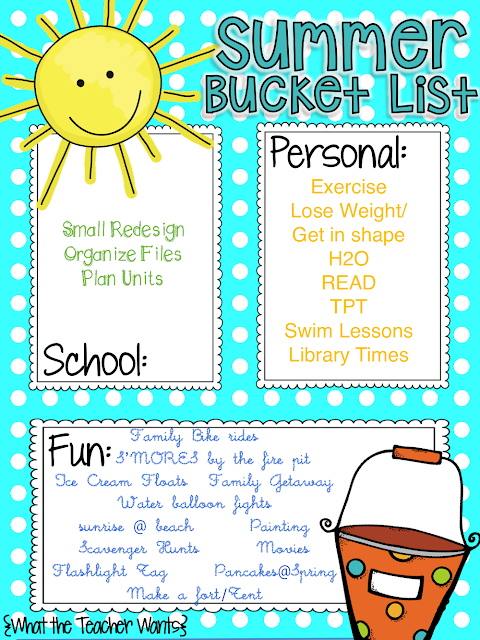 Summer
Bucket List
School:
Small Redesign
Organize Files
Plan Units
Personal:
Exercise
Lose Weight/
Get in shape
H2O
READ
TPT
Swim Lessons
Library Times
Fun:
Family Bike rides
S'MORES by the fire pit
Ice Cream Floats Family Getaway
Water balloon fights
sunrise @ beach Painting
Scavenger Hunts Movies
Flashlight Tag Pancakes@Spring
Make a fort/Tent
{What the Teacher Wants}